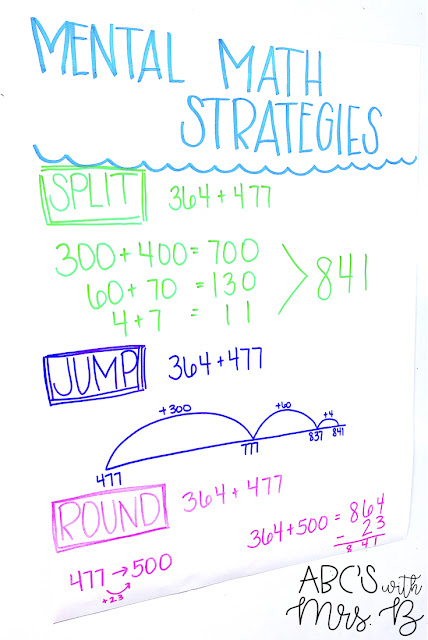 MENTAL MATH
STRATEGIES
SPLIT 364 + 477
300 + 400 = 700
60 + 70 = 130
4 + 7 = 11
> 841
JUMP 364 + 477
+300 +60 +4
477 777 837 841
ROUND 364 + 477
364 + 500 = 864
- 23
841
477 → 500
+23
ABC'S with
Mrs. B